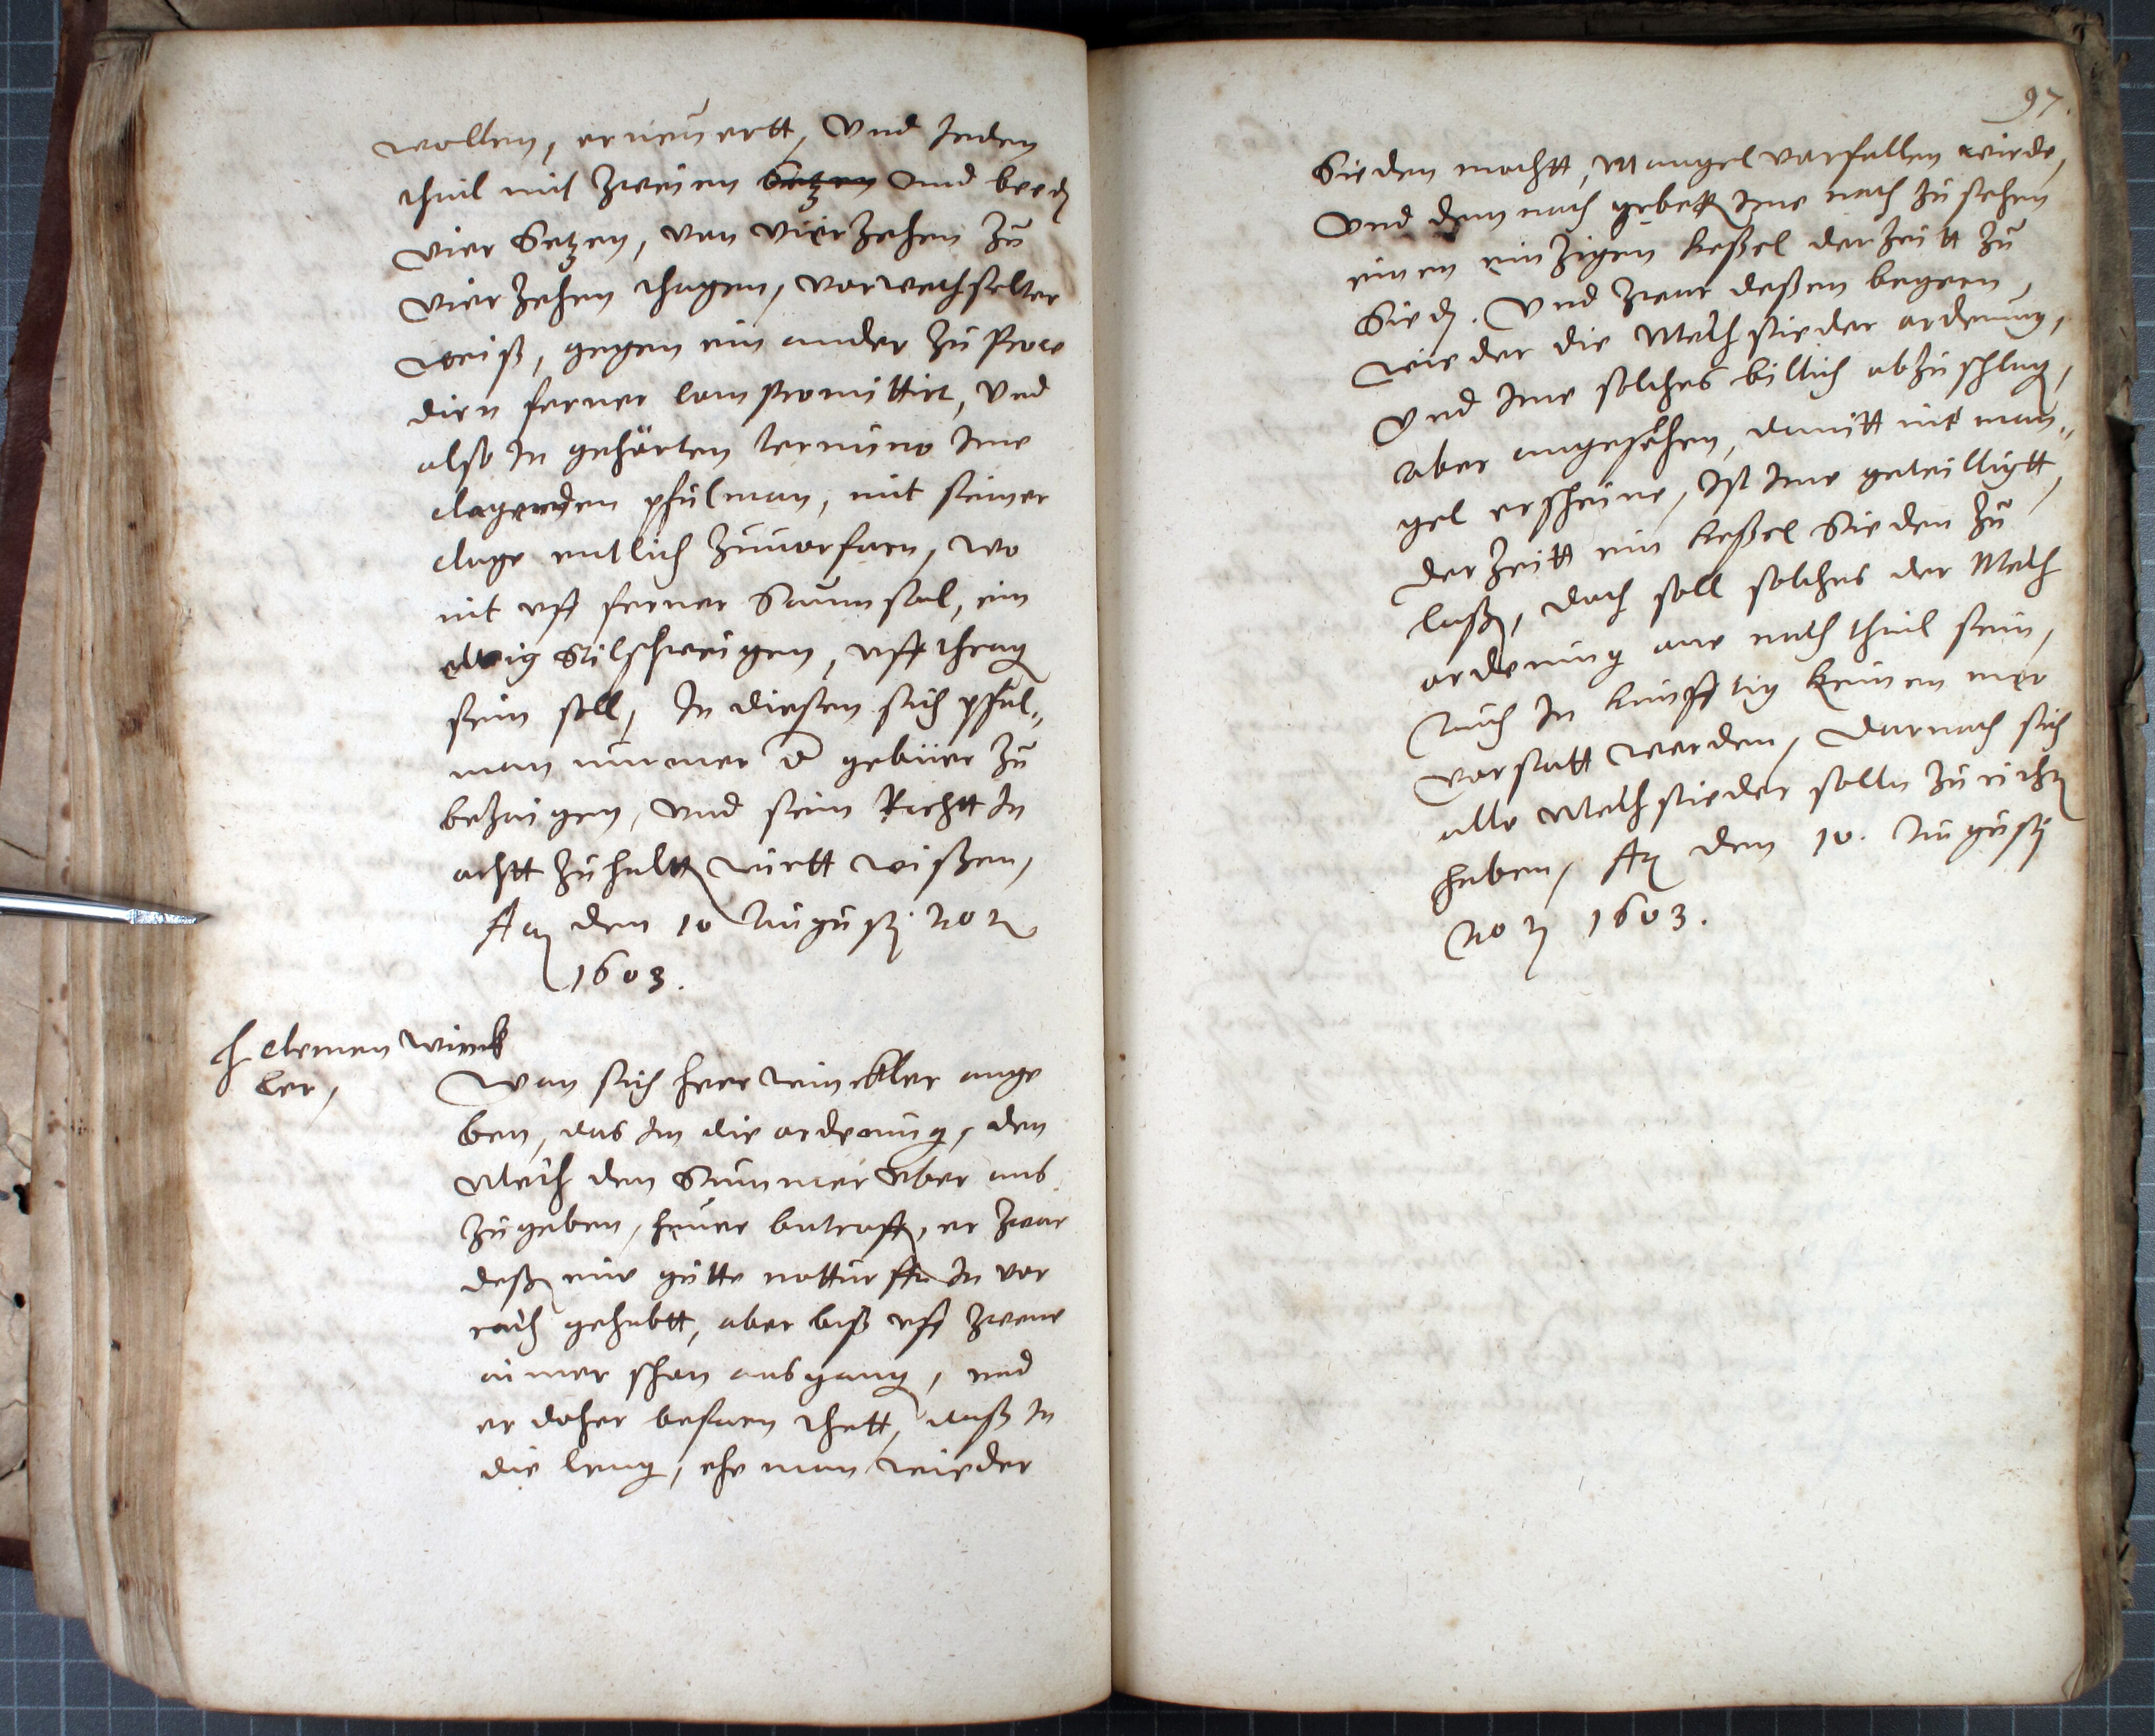 wollen, erneuertt, Vnd Jeden
theil mit Zweien Setzen Vnd beed
Vier Setzen, von Vierzehen zu
Vierzehen thagen, vorwechselter
weiß, gegen ein ander zu Proce
dirn ferner Compromittirt, Vnd
also In gehörten termino Ime
clagenden pfulman, mit seiner
clage entlich zuuorfarn, wo
nit vff ferner Saumsal, ein
ewig Stilschweigen, vffthrag
sein soll, In diesen sich pfül-
man nunmer d gebüer zu
bezaigen, Vnd sein Rechtt In
achtt zuhaltt wirtt wißen,
den 10 Augusti
1603.
H Clemen Winck
ler,
Wan sich Herr Winckler ange
ben, das Im die ordenung, den
Meth den Summer vber aus
zugeben, heuer betroff, er zwar
deß eine gutte notturfft In vor
rath gehabtt, aber biß vff zwene
aimer schon ausgang, Vnd
er daher befaren thett, daß In
die leng, ehe man wieder
97.
Sieden mochtt, Mangel vorfallen würde,
Vnd dem nach gebett Ime nach zusehen
einen einzigen keßel der Zeitt zu
Sied. Vnd zwar deßen begern,
wieder die Methsieder ordenung,
Vnd Ime solches billich abzuschlag,
aber angesehen, damitt nit man-
gel erscheine, Ist Ime gewilligtt
der Zeitt ein keßel Sieden zu
laß, doch soll solches der Meth
ordenung one nachtheil sein,
Auch In künfftig keinem mer
vorstatt werden, Darnach sich
alle Methsieder solln zurichtn
haben, den 10. Augusti
1603.